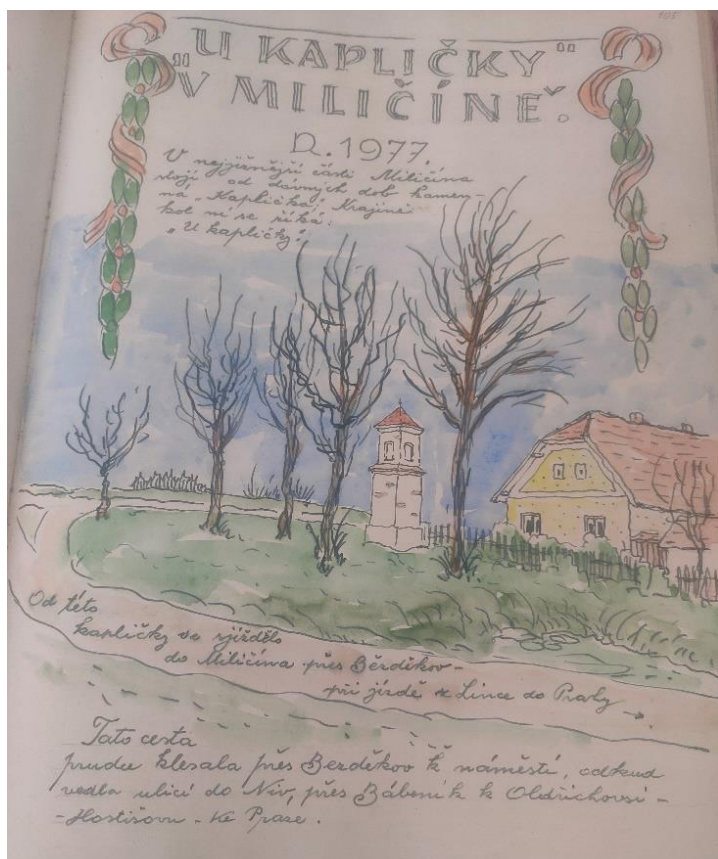 „U KAPLIČKY“
V MILIČÍNĚ.
R. 1977.
V nejjižnější části Miličína
stojí od dávných dob kamen-
ná „Kaplička“. Krajině
kol ní se říká:
„U kapličky“.
Od této
kapličky se sjíždělo
do Miličína přes Bězděkov -
při jízdě z Lince do Prahy
Tato cesta
prudce klesala přes Bezděkov k náměstí, odkud
vedla ulicí do Niv, přes Bábeník k Oldřichovsi -
- Hostišovu - ke Praze.